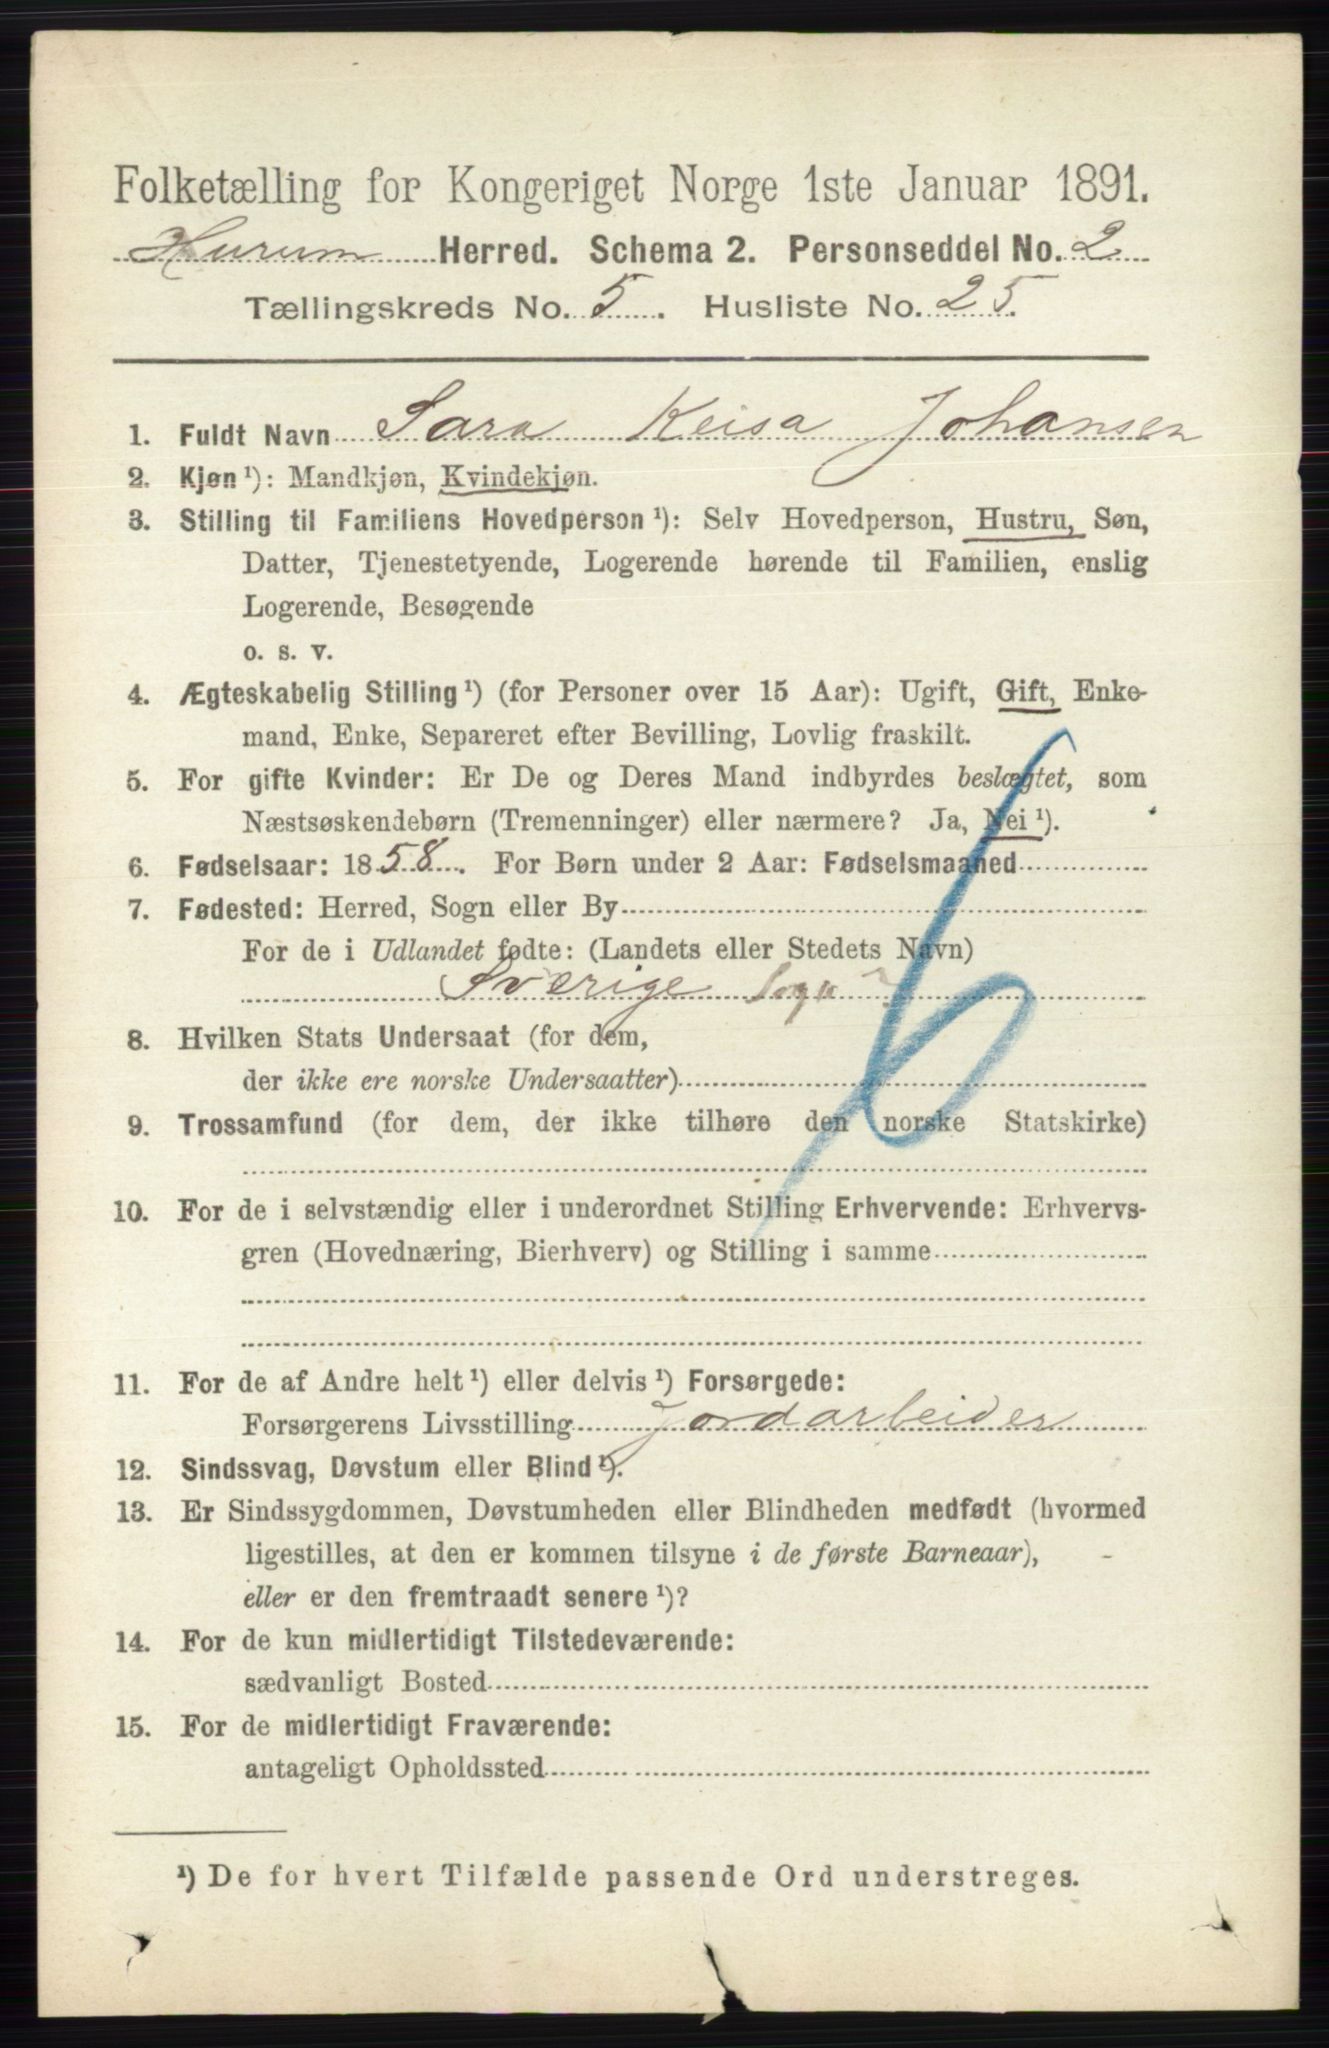 Folketælling for Kongeriget Norge 1ste Januar 1891.
Hurum Herred. Schema 2. Personseddel No. 2
Tællingskreds No. 5. Husliste No. 25.
1. Fuldt Navn Sara Keisa Johansen
2. Kjøn ¹): Mandkjøn, Kvindekjøn.
3. Stilling til Familiens Hovedperson ¹): Selv Hovedperson, Hustru, Søn,
Datter, Tjenestetyende, Logerende hørende til Familien, enslig
Logerende, Besøgende
o. s. v.
4. Ægteskabelig Stilling ¹) (for Personer over 15 Aar): Ugift, Gift, Enke-
mand, Enke, Separeret efter Bevilling, Lovlig fraskilt.
5. For gifte Kvinder: Er De og Deres Mand indbyrdes beslægtet, som
Næstsøskendebørn (Tremenninger) eller nærmere? Ja, Nei ¹).
6. Fødselsaar: 1858. For Børn under 2 Aar: Fødselsmaaned
7. Fødested: Herred, Sogn eller By
For de i Udlandet fødte: (Landets eller Stedets Navn)
Sverige Sogn ?
8. Hvilken Stats Undersaat (for dem,
der ikke ere norske Undersaatter)
9. Trossamfund (for dem, der ikke tilhøre den norske Statskirke)
10. For de i selvstændig eller i underordnet Stilling Erhvervende: Erhvervs-
gren (Hovednæring, Bierhverv) og Stilling i samme
11. For de af Andre helt ¹) eller delvis ¹) Forsørgede:
Forsørgerens Livsstilling Jordarbeider
12. Sindssvag, Døvstum eller Blind ¹).
13. Er Sindssygdommen, Døvstumheden eller Blindheden medfødt (hvormed
ligestilles, at den er kommen tilsyne i de første Barneaar),
eller er den fremtraadt senere ¹)?
14. For de kun midlertidigt Tilstedeværende:
sædvanligt Bosted
15. For de midlertidigt Fraværende:
antageligt Opholdssted
¹) De for hvert Tilfælde passende Ord understreges.